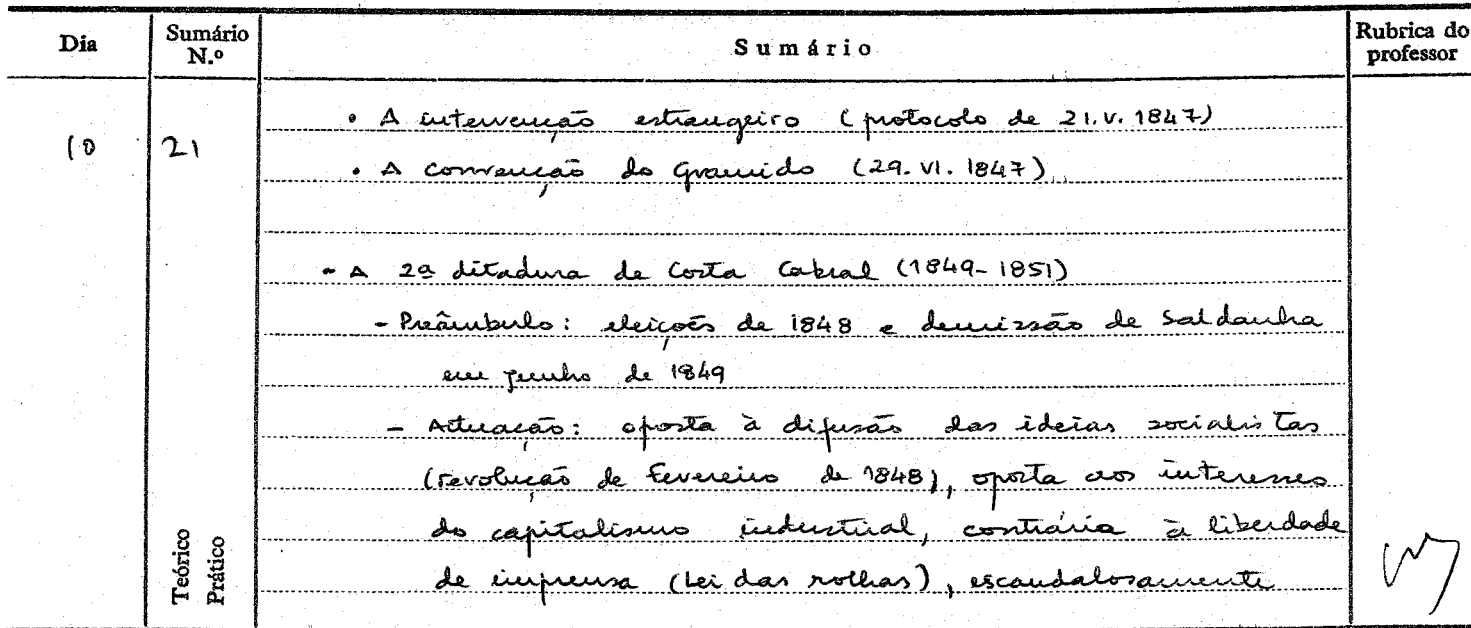 Dia Sumário N.º Sumário Rubrica do professor
10 21 • A intervenção estrangeiro (protocolo de 21.V.1847)
• A convenção do Gramido (29.VI.1847)
- A 2ª ditadura de Costa Cabral (1849-1851)
- Preâmbulo: eleições de 1848 e demissão de Saldanha
em junho de 1849
- Actuação: oposta à difusão das ideias socialistas
(revolução de Fevereiro de 1848), oposta aos interesses
do capitalismo industrial, contrária à liberdade
de imprensa (Lei das rolhas), escandalosamente
Teórico
Prático